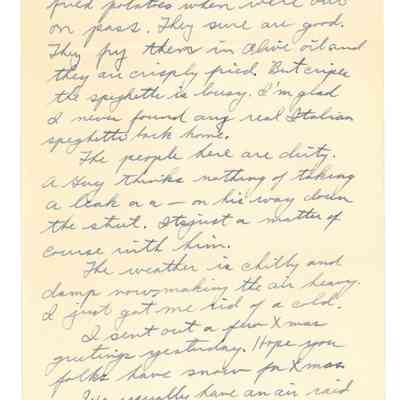 fried potatoes when we're out
on pass. They sure are good.
They fry them in olive oil and
they are crisply fried. But cripes
the speghette is lousy. I'm glad
I never found any real Italian
speghette back home.
The people here are dirty.
A Guy thinks nothing of taking
a leak or a — on his way down
the street. Its just a matter of
course with him.
The weather is chilly and
damp now, making the air heavy.
I just got me rid of a cold.
I sent out a few Xmas
greetings yesterday. Hope you
folks have snow for Xmas.
We usually have an air raid